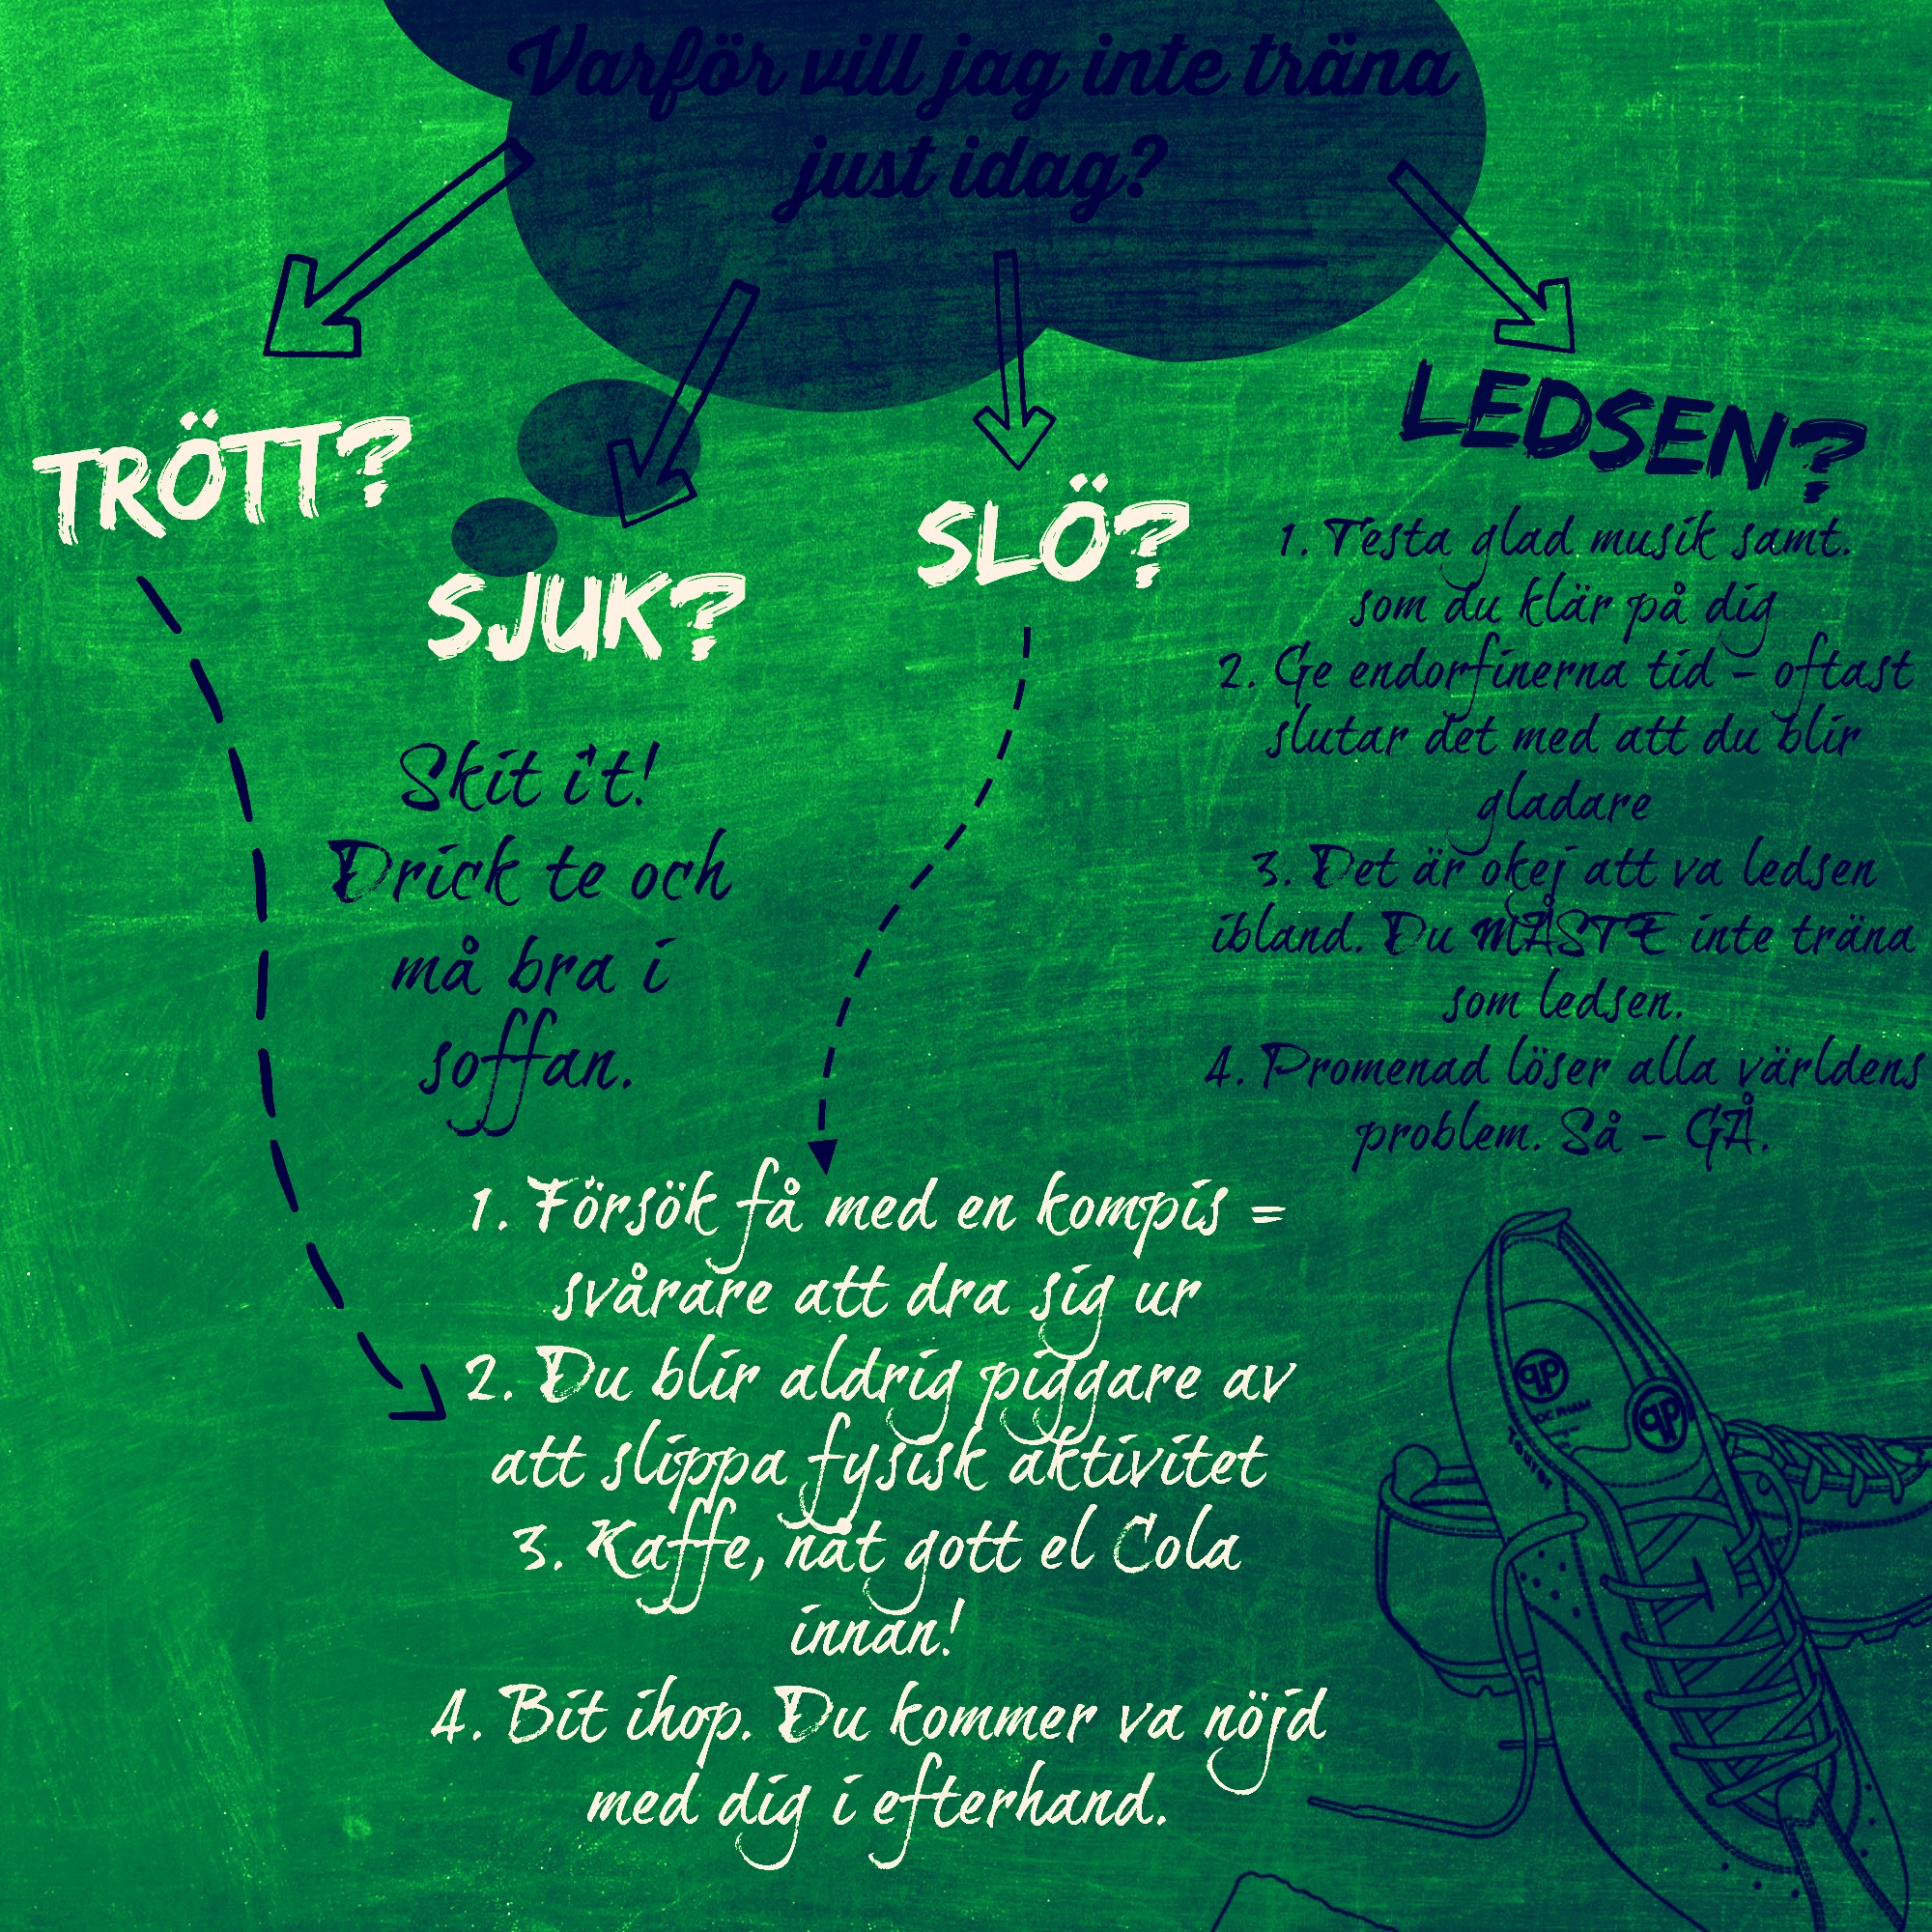 Varför vill jag inte träna
just idag?
TRÖTT?
SJUK?
SLÖ?
LEDSEN?
Skit i't!
Drick te och
må bra i
soffan.
1. Testa glad musik samt.
som du klär på dig
2. Ge endorfinerna tid - oftast
slutar det med att du blir
gladare
3. Det är okej att va ledsen
ibland. Du MÅSTE inte träna
som ledsen.
4. Promenad löser alla världens
problem. Så - GÅ.
1. Försök få med en kompis =
svårare att dra sig ur
2. Du blir aldrig piggare av
att slippa fysisk aktivitet
3. Kaffe, nåt gott el Cola
innan!
4. Bit ihop. Du kommer va nöjd
med dig i efterhand.